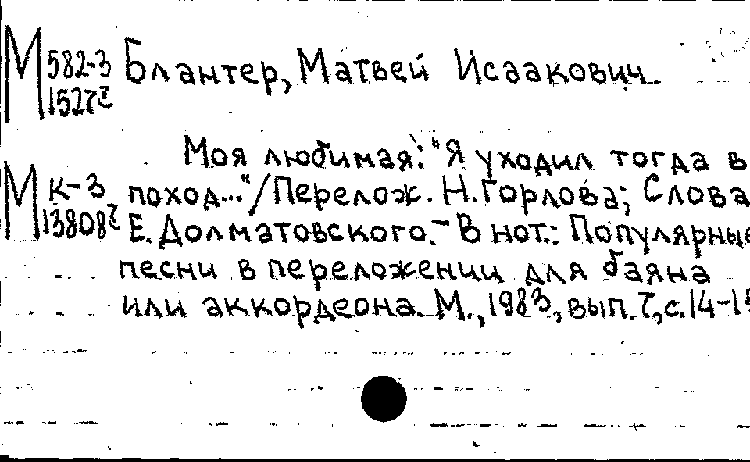 М 582-3 Блантер, Матвей Исаакович.
1527г
Моя любимая: "Я уходил тогда в
М К-3 поход..."/Перелож. Н.Горлова; Слова
13808г Е.Долматовского.- В нот.: Популярные
песни в переложении для баяна
или аккордеона. М., 1983, вып.7, с.14-15